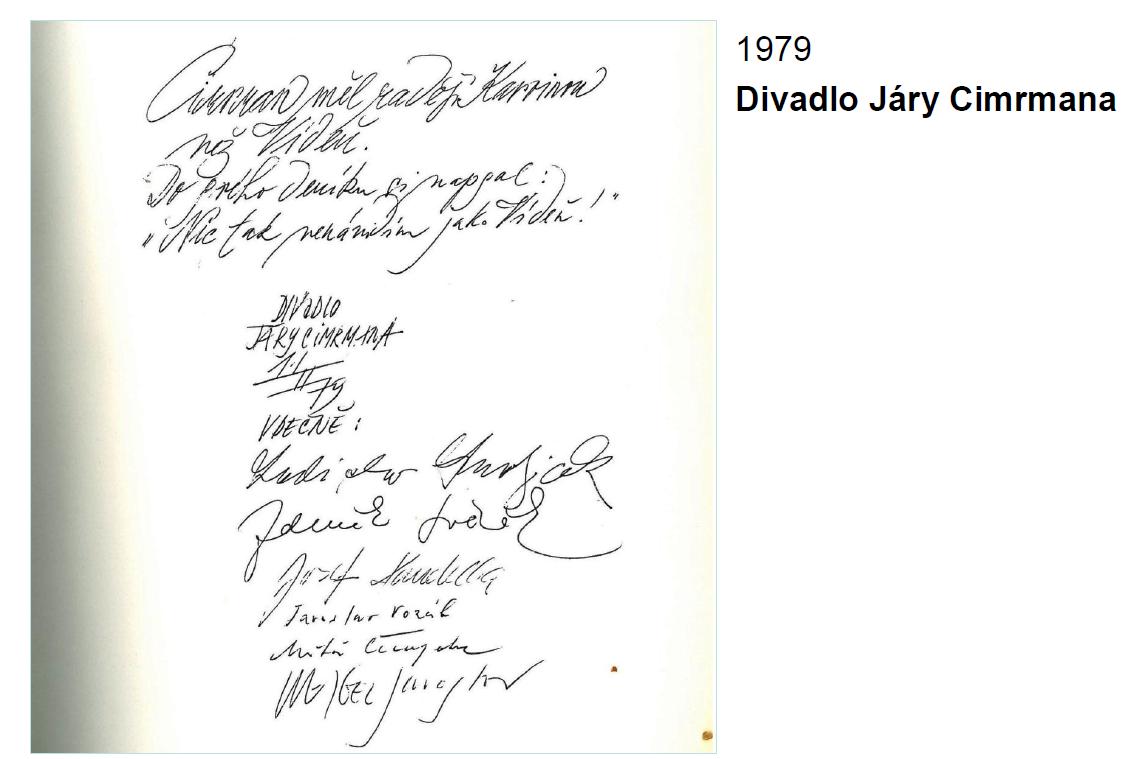 Cimrman měl raději Karvinou
než Vídeň.
Do svého deníku si napsal:
"Nic tak nenávidím jako Vídeň!"
DIVADLO
JÁRY CIMRMANA
II 79
VDĚČNĚ:
Ladislav Smoljak
Zdeněk Svěrák
Josef
Jaroslav Vozáb
Jaroslav
1979
Divadlo Járy Cimrmana